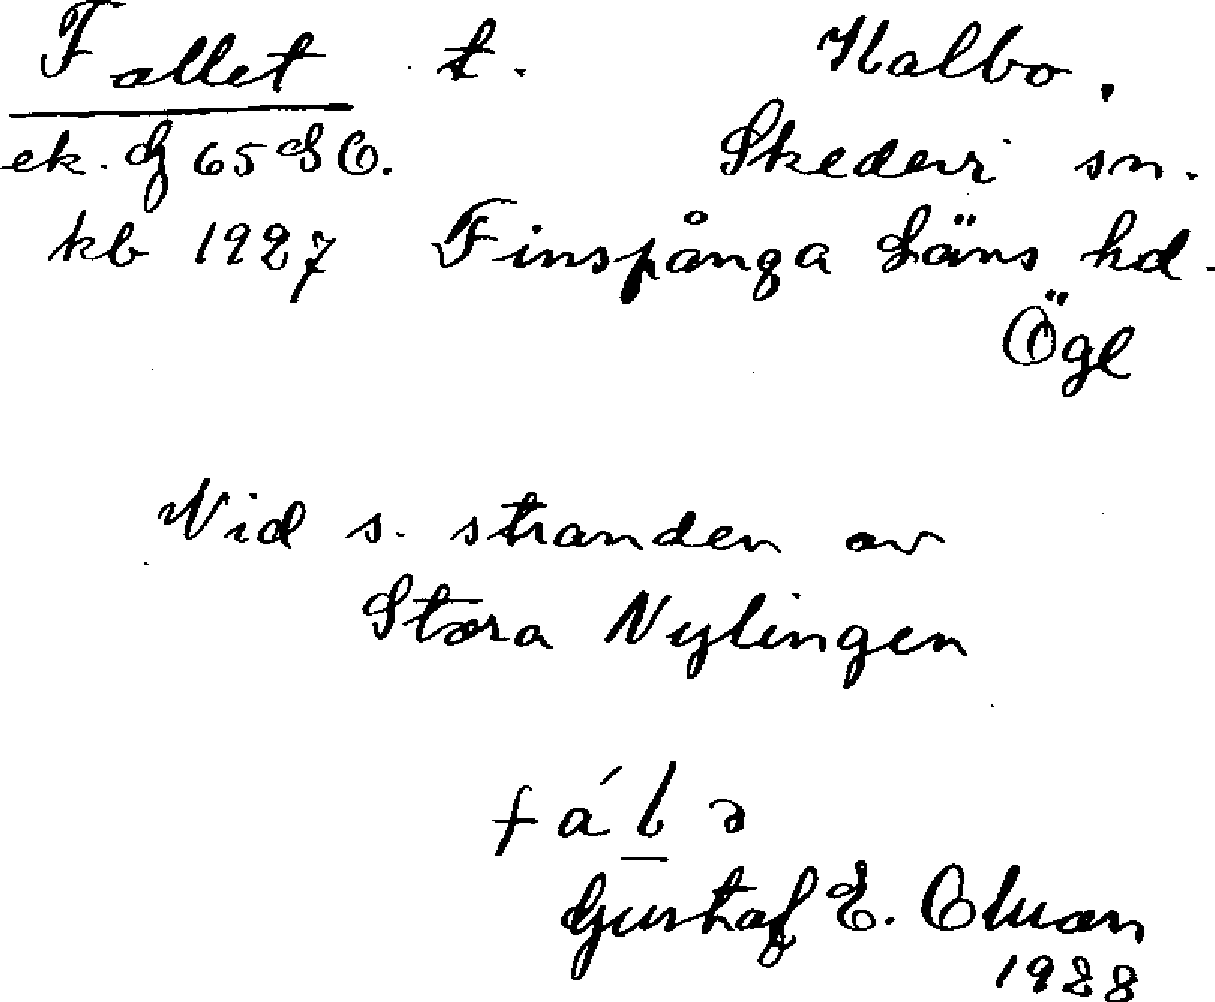 Fallet t. Kalbo.
ek. bl 65 SO. Skedevi sn.
kb 1927 Finspånga läns hd.
Ögl
Vid s. stranden av
Stora Nylingen
fálə
Gustaf E. Oluan
1928